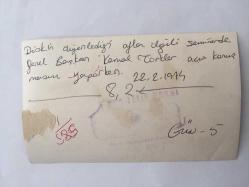 Diskin düzenlediği afla ilgili seminerde
Genel Başkan Kemal Türkler açış konuş
masını yaparken. 22.2.1974
8,2
585
Gün - 5